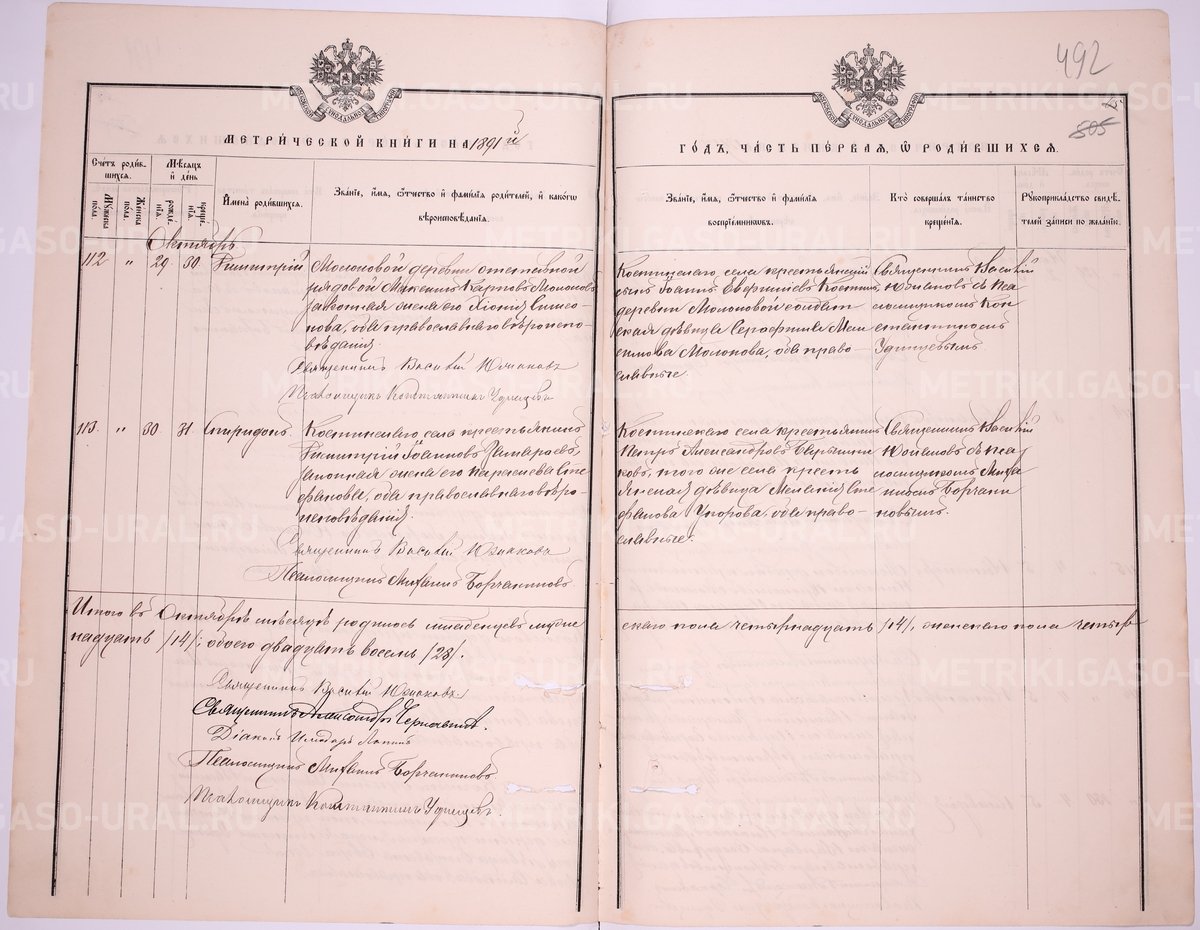 492
505
МЕТРИЧЕСКОЙ КНИГИ НА 1891 й
ГОДЪ, ЧАСТЬ ПЕРВАЯ, Ѡ РОДИВШИХСЯ.
Счетъ родившихся.
Мужеска пола.
Женска пола.
Мѣсяцъ и день
рожденія.
крещенія.
Имена родившихся.
Званіе, имя, отчество и фамилія родителей, и какогѡ вѣроисповѣданія.
Званіе, имя, отчество и фамилія воспріемниковъ.
Кто совершалъ таинство крещенія.
Рукоприкладство свидѣтелей записи по желанію.
Октябрь
112 " 29 30 Димитрій
Молоковой деревни отставной
рядовой Максимъ Карповъ Молоковъ,
законная жена его Хіонія Симео-
нова, оба православнаго вѣроиспо-
вѣданія.
Священникъ Василій Южаковъ
Псаломщикъ Константинъ Удинцевъ
Костинскаго села крестьянскій
сынъ Іоаннъ Костинъ,
деревни Молоковой солдат-
ская дѣвица Серафима Мак-
симова Молокова, оба право-
славные.
Священникъ Василій
Южаковъ съ пса-
ломщикомъ Кон-
стантиномъ
Удинцевымъ.
113. " 30 31 Спиридонъ.
Костинскаго села крестьянинъ
Димитрій Іоанновъ
законная жена его Параскева Сте-
фановы, оба православнаго вѣро-
исповѣданія.
Священникъ Василій Южаковъ
Псаломщикъ Михаилъ Борчаниновъ
Костинскаго села крестьянинъ
Петръ Александровъ
ковъ, того же села кресть-
янская дѣвица Сте-
фанова Упорова, оба право-
славные.
Священникъ Василій
Южаковъ съ пса-
ломщикомъ Миха-
иломъ Борчани-
новымъ.
Итого въ Октябрѣ мѣсяцѣ родилось младенцевъ муже-
скаго пола четырнадцать /14/, женскаго пола четыр-
надцать /14/; обоего двадцать восемь /28/.
Священникъ Василій Южаковъ
Священникъ Александръ Чернавинъ.
Діаконъ
Псаломщикъ Михаилъ Борчаниновъ
Псаломщикъ Константинъ Удинцевъ.
METRIKI.GASO-URAL.RU